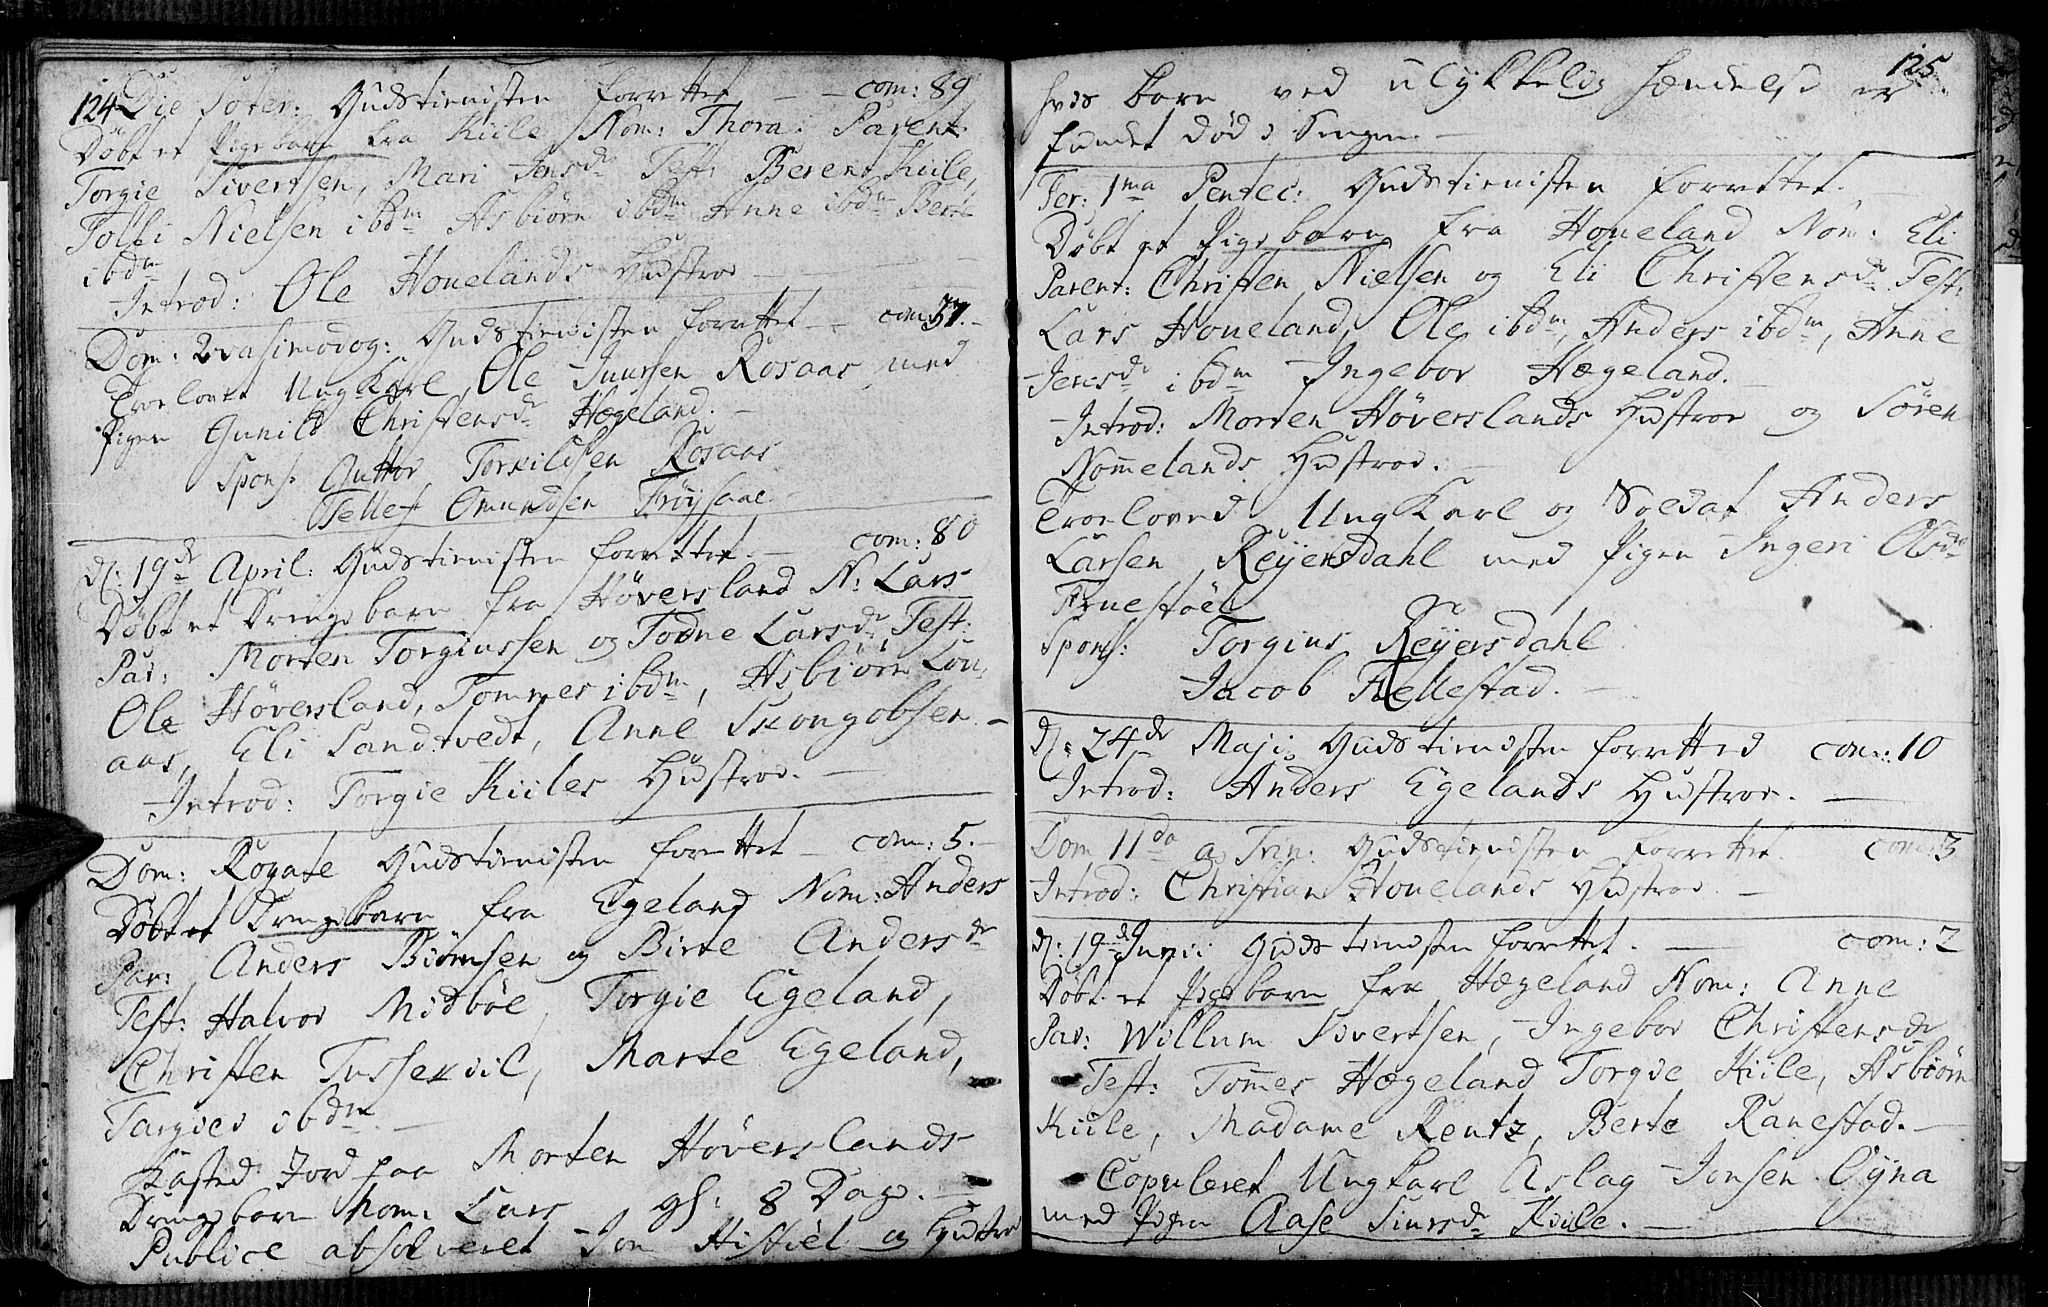 124 Die Soter: Gudstienisten forrettet — — com: 89
Döbt et Pigebarn fra Kiile Nom: Thora. Parent:
Torgie Sivertsen, Mari Jensdr Test: Berent Kiile,
Tolli Nielsen ibdm Asbiörn ibdm Anne ibdm Berte
ibdm
Introd: Ole Houelands Hustroe — — —
Dom: Qvasimodog: Gudstienisten forrettet — com: 37.
Troelovet Ungkarl Ole Juursen Rosaas med
Pigen Gunild Christensdr Hægeland. —
Spons. Guttor Torkildsen Rosaas
Tellef Omundsen Fröysaae. —
d: 19de April: Gudstienisten forrettet. — com: 80
Döbt et Drengebarn fra Höversland N: Lars
Par: Morten Torgiussen og Todne Larsdr Test:
Ole Höversland, Tommes ibdm, Asbiörn Lou-
aas, Eli Sandtvedt, Anne Skongobsen. —
Introd: Torgie Kiiles Hustroe. —
Dom: Rogate Gudstienisten forrettet — com: 5. —
Döbt et Drengebarn fra Egeland Nom: Anders
Par: Anders Biörnsen og Birte Andersdr
Test: Halvor Midböe, Torgie Egeland,
Christen Tusservil, Marte Egeland,
Targier ibdm. —
Kasted Jord paa Morten Höverslands
Drengebarn Nom: Lars gl: 8 Dage. —
Publice absolveret Jon Histöl og Hustroe
125
hvis barn ved ulykkelig hændelse er
fundet död i Sengen. —
Fer: 1ma Pentec: Gudstienisten forrettet. —
Döbt et Pigebarn fra Houeland Nom: Eli
Parent: Christen Nielsen og Eli Christensdr Test:
Lars Houeland, Ole ibdm, Anders ibdm, Anne
Jensdr ibdm Ingebor Hægeland. —
Introd: Morten Höverslands Hustroe og Sören
Nommelands Hustroe. —
Troeloved Ungkarl og Soldat Anders
Larsen Reyersdahl med Pigen Ingeri Olsdr
Fruestöel
Spons: Torgius Reyersdahl.
Jacob Fiellestad. —
d: 24de Maji Gudstienisten forretted com: 10
Introd: Anders Egelands Hustroe. —
Dom 11da a Trin: Gudstienisten forrettet. com: 3
Introd: Christian Houelands Hustroe. —
d: 19de Junii: Gudstienisten forrettet. — com: 2
Döbt et Pigebarn fra Hægeland Nom: Anne
Par: Willum Sivertsen, Ingebor Christensdr
Test: Tommes Hægeland Torgie Kiile, Asbiörn
Kiile, Madame Rentz, Berte Ranestad. —
Copuleret Ungkarl Aslag Jonsen Öyna
med Pigen Aase Siursdr Kiile. —